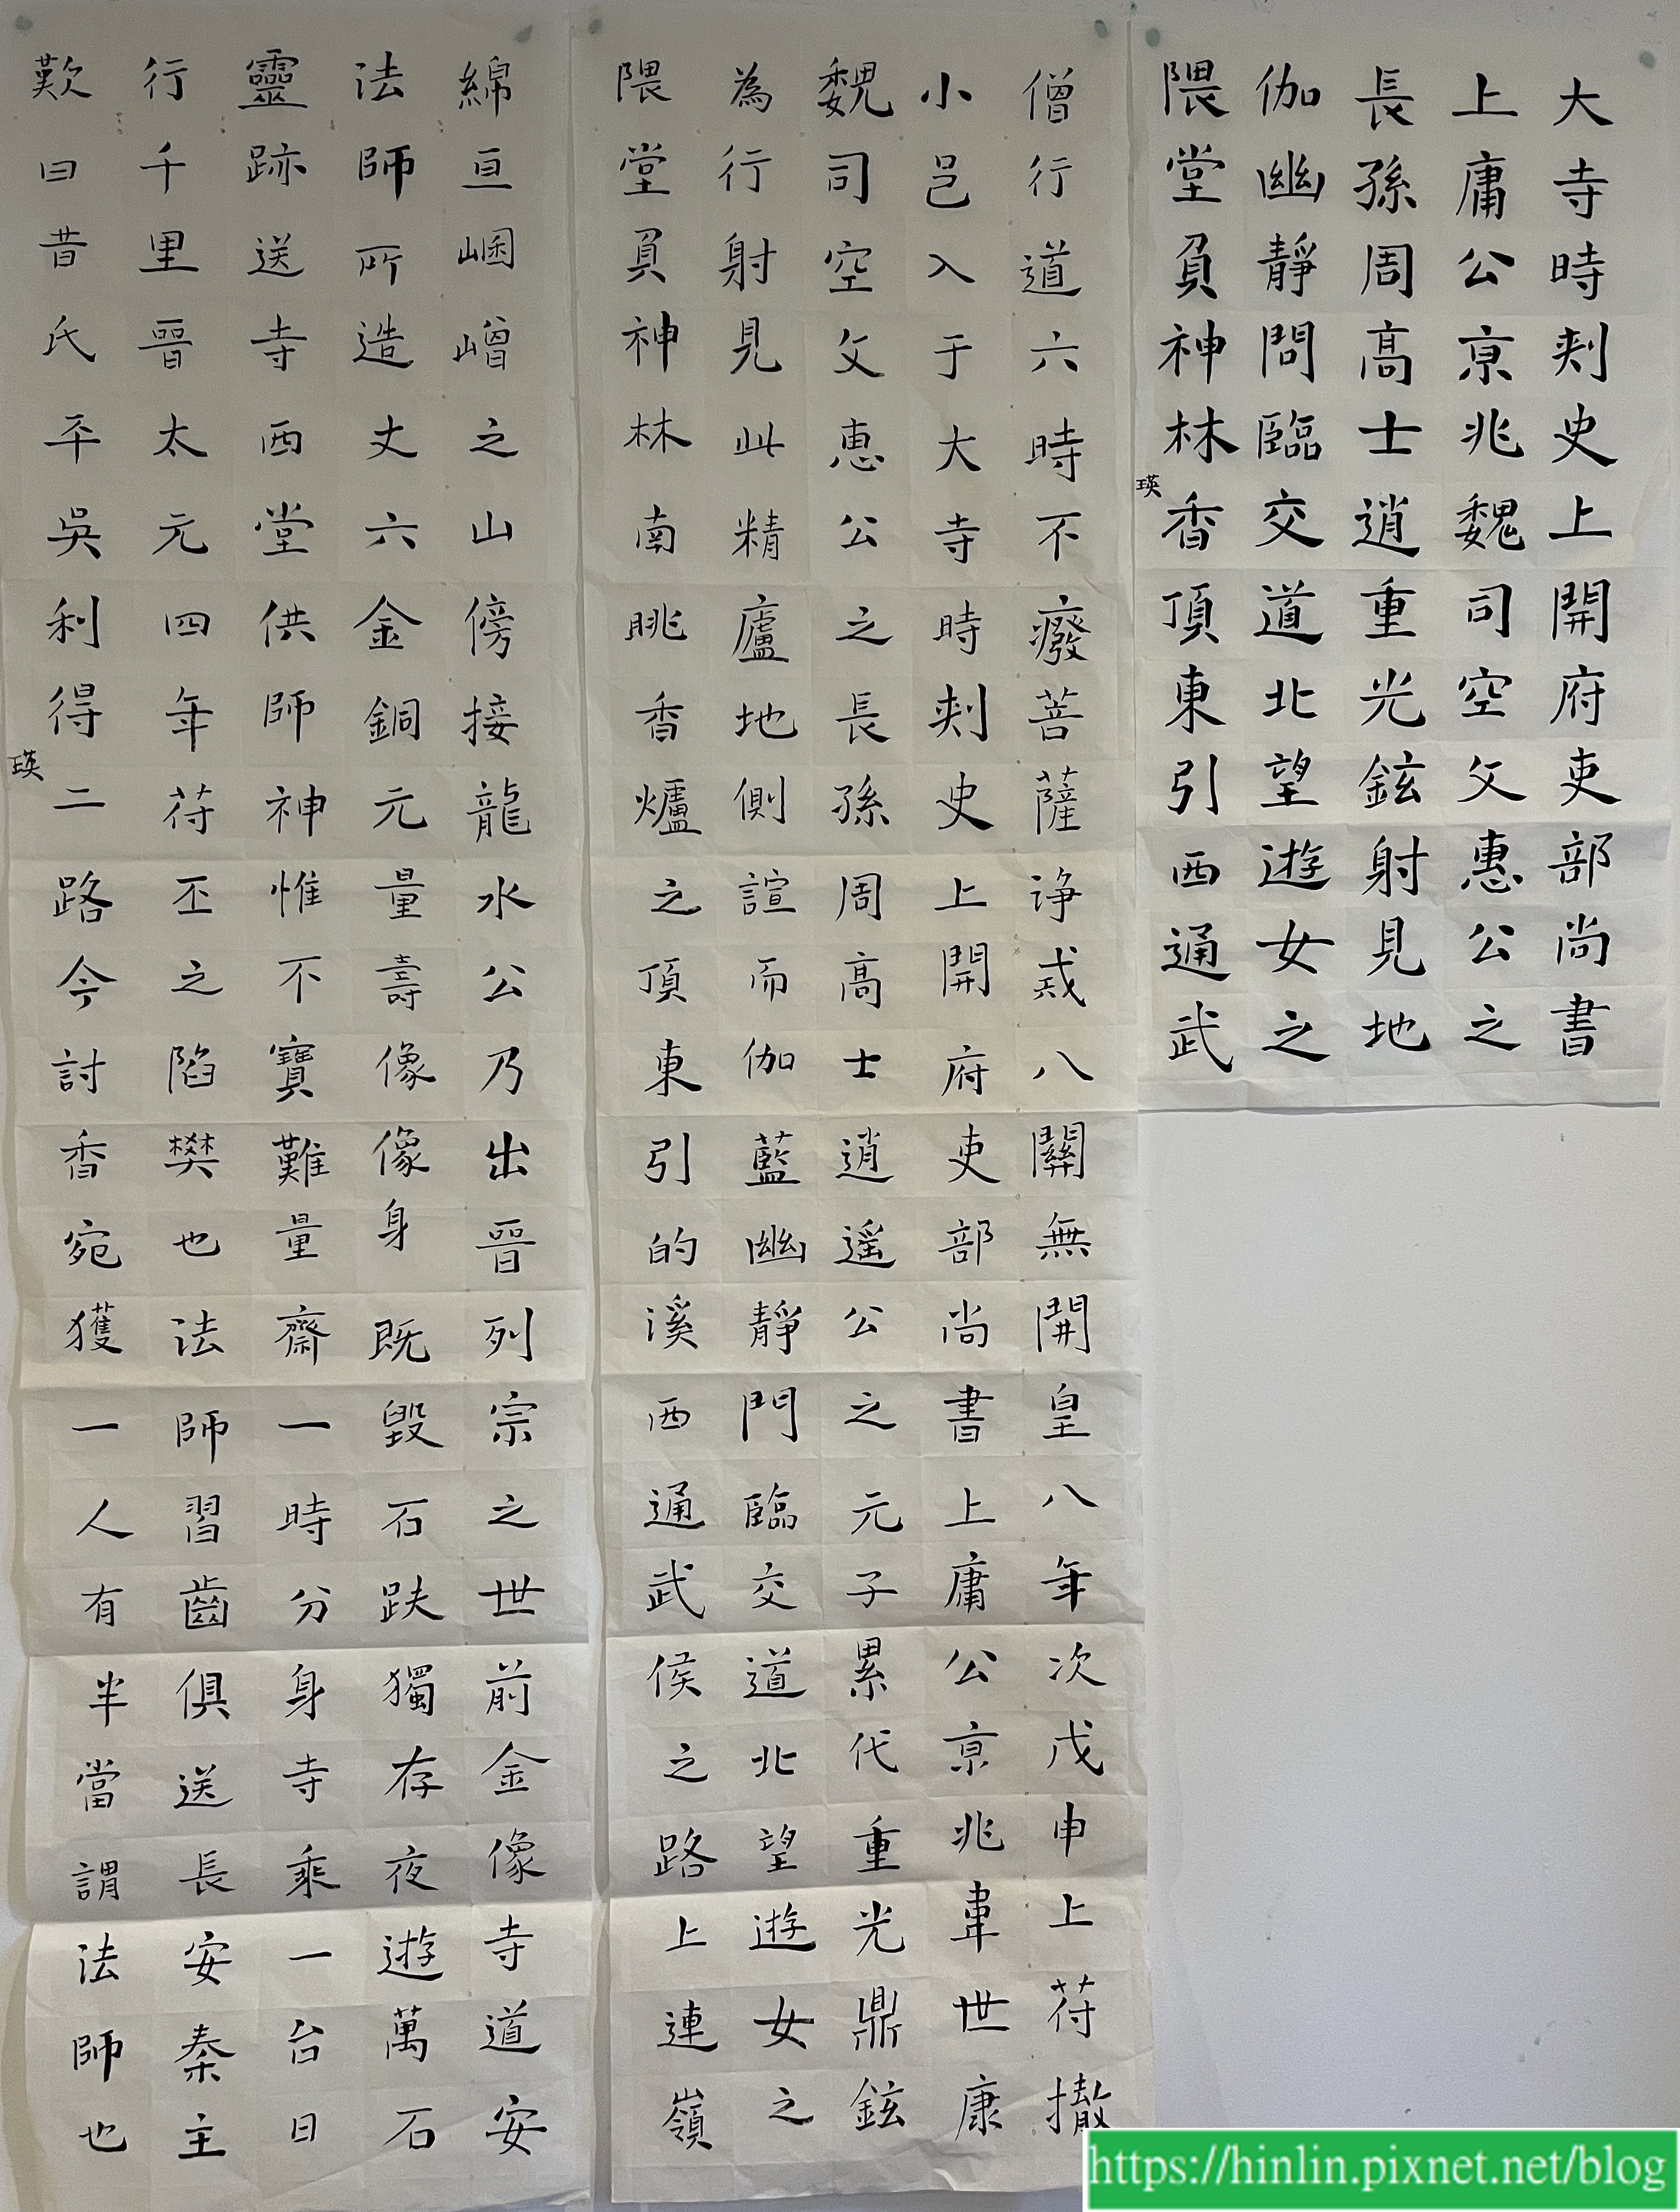 大寺時刾史上開府吏部尚書
上庸公京兆魏司空父惠公之
長孫周高士逍重光鉉射見地
伽幽靜問臨交道北望遊女之
隈堂負神林香頂東引西通武
瑛
僧行道六時不癈菩薩諍戒八關無開皇八年次戊申上苻撤
小邑入于大寺時刾史上開府吏部尚書上庸公京兆韋世康
魏司空父惠公之長孫周高士逍遥公之元子累代重光鼎鉉
為行射見此精廬地側諠而伽藍幽靜門臨交道北望遊女之
隈堂負神林南眺香爐之頂東引的溪西通武侯之路上連嶺
綿亘崓嶒之山傍接龍水公乃出晉列宗之世前金像寺道安
法師所造丈六金銅元量壽像像身既毀石趺獨存夜遊萬石
靈跡送寺西堂供師神惟不寶難量齋一時分身寺乘一台日
行千里晉太元四年苻丕之陷樊也法師習齒俱送長安秦主
歎曰昔氏平吳利得二路今討香宛獲一人有半當謂法師也
瑛
https://hinlin.pixnet.net/blog